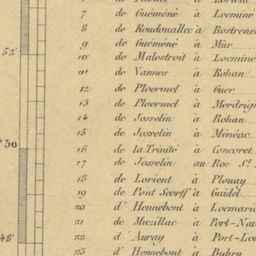 7 de Guémené à Locminé
8 de RoudoualLec à Rostrenen
9 de Guémené à Mûr
10 de Malestroit à Locminé
11 de Vannes à Rohan
12 de Ploermel à Guer
13 de Ploermel à Merdrign
14 de Josselin à Rohan
15 de Josselin à Ménéac
16 de la Trinité à Concoret
17 de Josselin au Roc St.
18 de Lorient à Plouay
19 de Pont Scorff à Guidel
20 d'Hennebont à Locmaria
21 de Muzillac à Port-Na
22 d'Auray à Port-Lo
23 d'Hennebont à
52'
50
48'